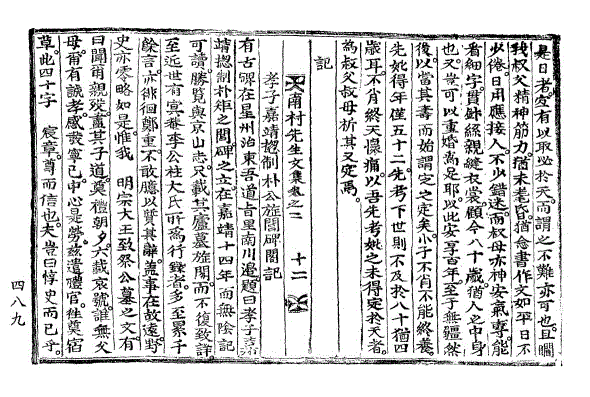 是日老。空有以取必於天。而謂之不難。亦可也。且瞷
我叔父精神筋力。猶未耄昏。猶能書作文如平日。不
少倦。日用應接。人不少錯迷。而叔母亦神安氣專。能
看細字。貫針絲。親縫衣裳。顧今八十歲。猶人之中身
也。又豈可以重婚為足耶。以此安享百年。至于無疆。然
後以當其壽而始謂空之定矣。小子不肖不能終養。
先妣得年僅五十二。先考下世則不及於八十猶四
歲耳。不肖終天懷痛。以吾先考妣之未得定於天者。
為叔父叔母祈其又定焉。
記
孝子嘉靖摠制朴公旌閭碑閣記
有古碑在星州治東吾道音里南川邊。題曰孝子嘉
靖摠制朴矩之閭。碑之立。在嘉靖十四年。而無陰記
可讀。勝覽與京山志。只載其廬墓旌閭。而不復致詳。
至近世有宣 李公柱大氏所為行錄者。多至累千
餘言。亦徘徊鄭重。不敢臆以質其辭。蓋事在故遠。野
史亦零略如是。惟我 明宗大王致祭公墓之文。有
曰聞甫親歿。盡其子道。奠禮朝夕。六載哀號。誰無父
母。甫有誠孝。感喪寧已。中心是勞。茲遣禮官。往奠宿
草。此四十字 宸章。尊而信也。夫豈曰惇史而已乎。
南村先生文集卷之二
十二
四八九